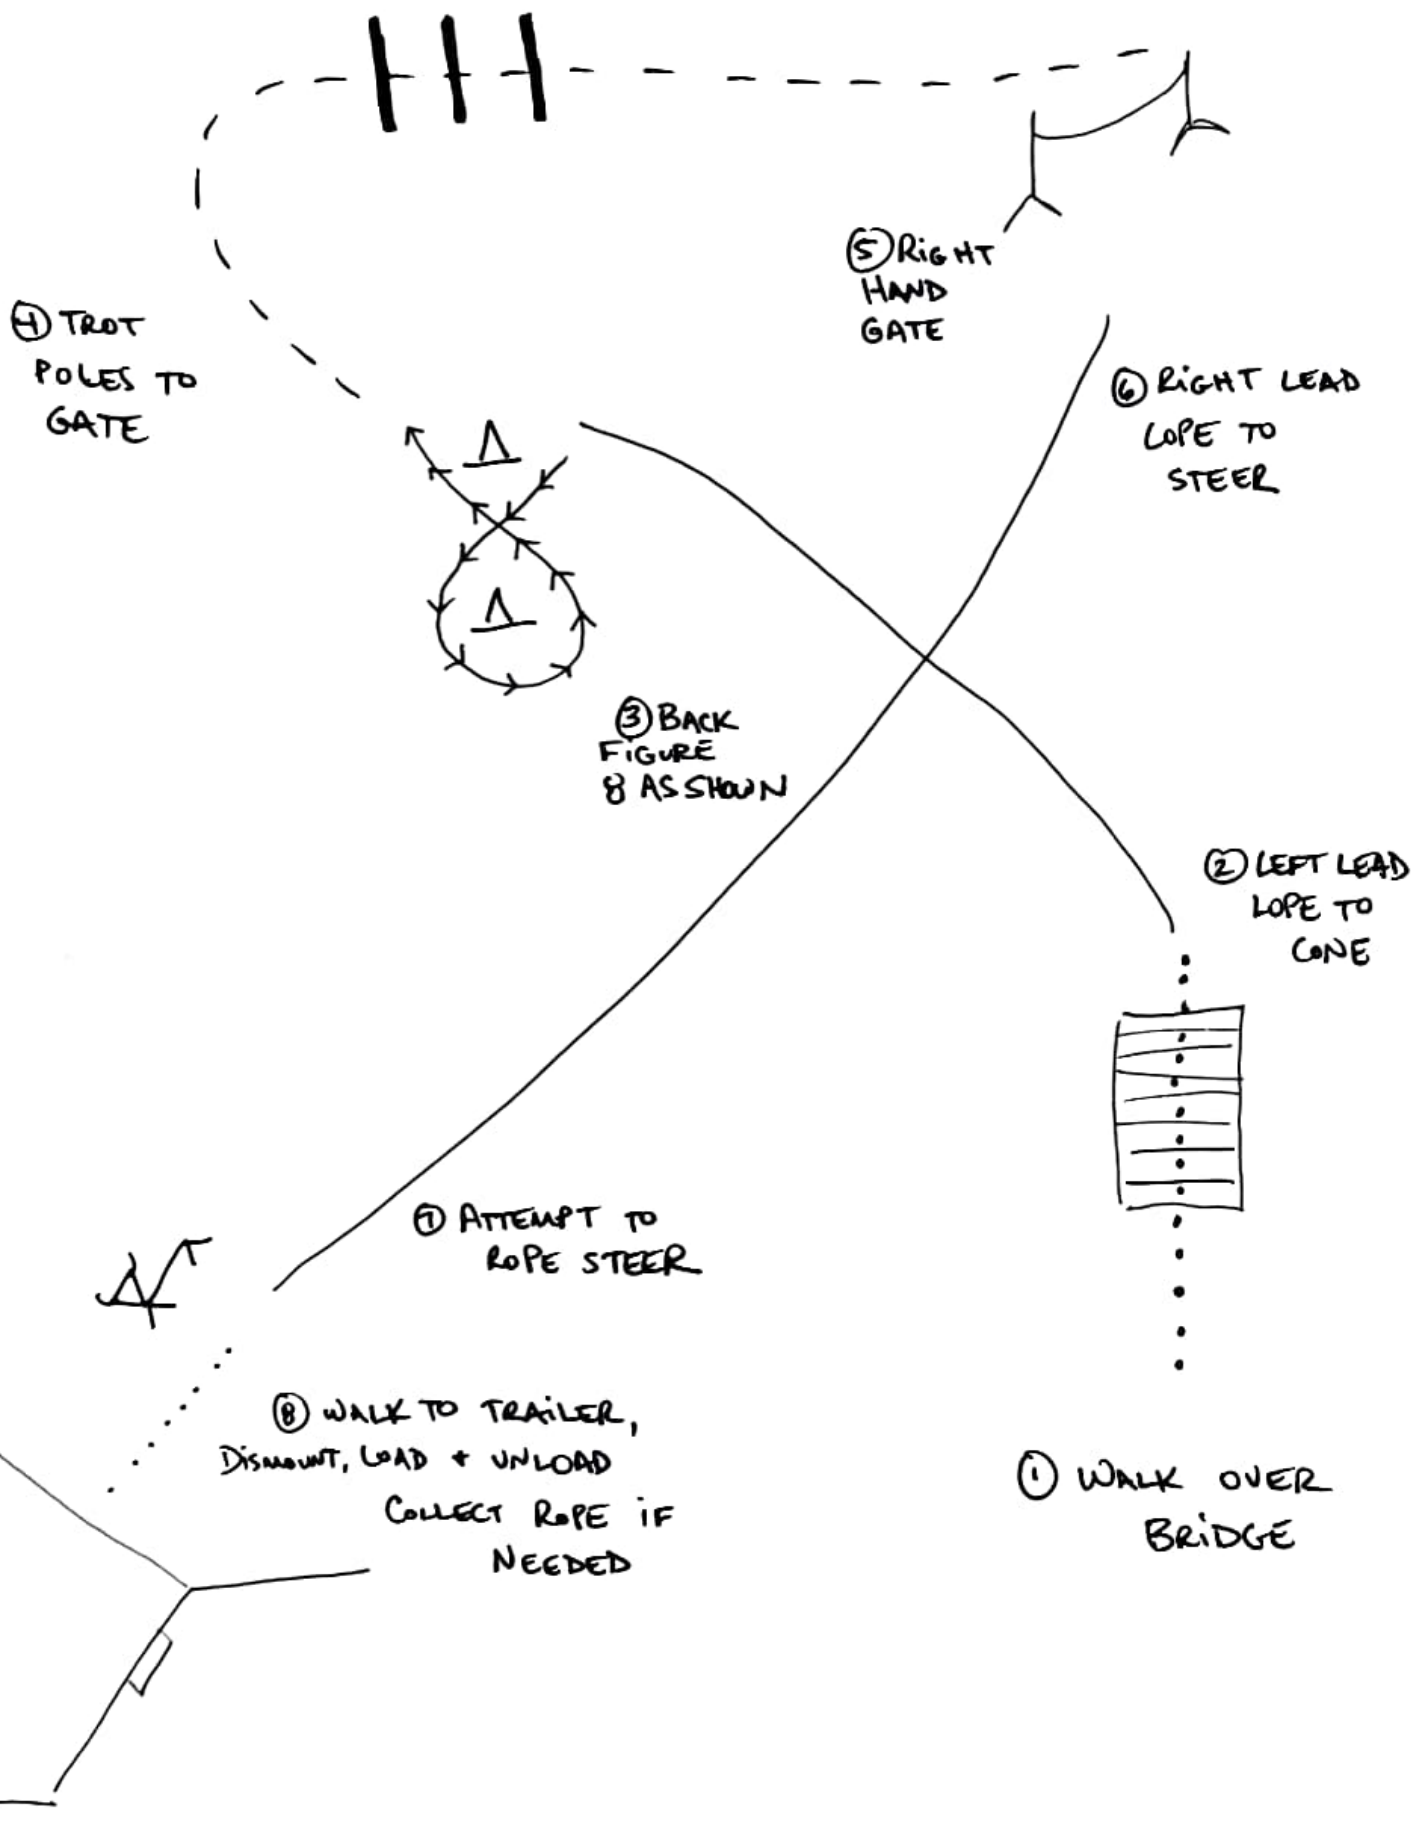 ④ TROT
POLES TO
GATE
⑤ RiGHT
HAND
GATE
⑥ RiGHT LEAD
LOPE TO
STEER
③ BACK
FiGURE
8 AS SHOWN
② LEFT LEAD
LOPE TO
CONE
⑦ ATTEMPT TO
ROPE STEER
⑧ WALK TO TRAiLER,
DiSMOUNT, LOAD + UNLOAD
COLLECT ROPE iF
NEEDED
① WALK OVER
BRiDGE